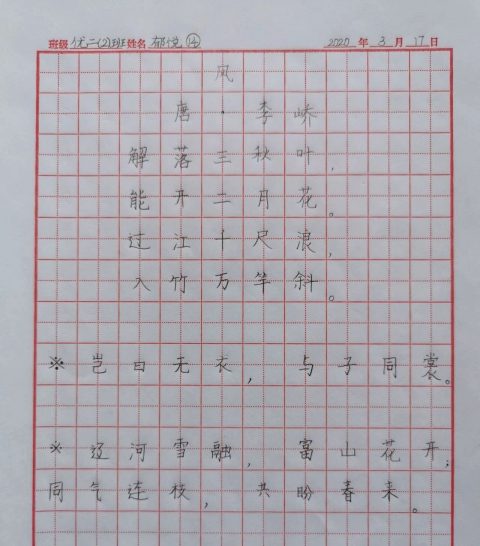 班级 优二(2)班 姓名 郁悦 ⑭ 2020 年 3 月 17 日
风
唐·李峤
解落三秋叶,
能开二月花。
过江千尺浪,
入竹万竿斜。
※岂曰无衣,与子同裳。
※辽河雪融,富山花开;
同气连枝,共盼春来。